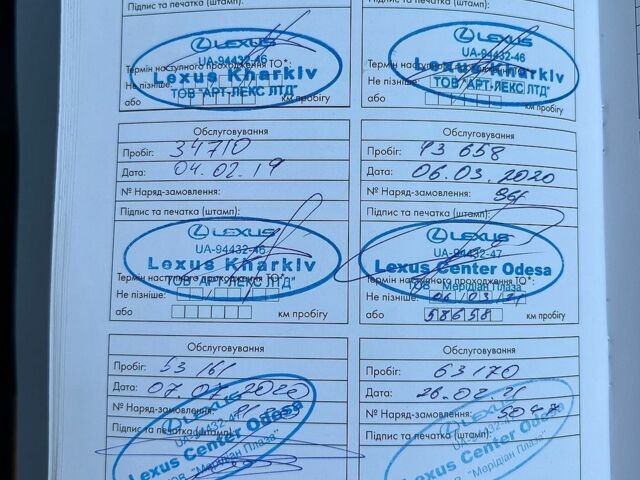 Підпис та печатка (штамп):
LEXUS
UA-94432-46
Термін наступного проходження ТО*:
Lexus Kharkiv
Не пізніше:
ТОВ "АРТ-ЛЕКС ЛТД"
або
км пробігу
Підпис та печатка (штамп):
LEXUS
UA-94432-46
Lexus Kharkiv
Не пізніше:
ТОВ "АРТ-ЛЕКС ЛТД"
або
км пробігу
Обслуговування
Пробіг: 34710
Дата: 04.02.19
№ Наряд-замовлення:
Підпис та печатка (штамп):
LEXUS
UA-94432-46
Lexus Kharkiv
Термін наступного проходження ТО*:
ТОВ "АРТ-ЛЕКС ЛТД"
Не пізніше:
або
км пробігу
Обслуговування
Пробіг: 43 658
Дата: 06.03.2020
№ Наряд-замовлення:
Підпис та печатка (штамп):
LEXUS
UA-94432-47
Lexus Center Odesa
Термін наступного проходження ТО*:
ТОВ "Мерідіан Плаза"
Не пізніше: 06/03/21
або 58658 км пробігу
Обслуговування
Пробіг: 53161
Дата: 07.07.2020
№ Наряд-замовлення:
Підпис та печатка (штамп):
LEXUS
UA-94432-47
Lexus Center Odesa
ТОВ "Мерідіан Плаза"
Обслуговування
Пробіг: 63170
Дата: 26.02.21
№ Наряд-замовлення:
Підпис та печатка (штамп):
LEXUS
UA-94432-47
Lexus Center Odesa
ТОВ "Мерідіан Плаза"